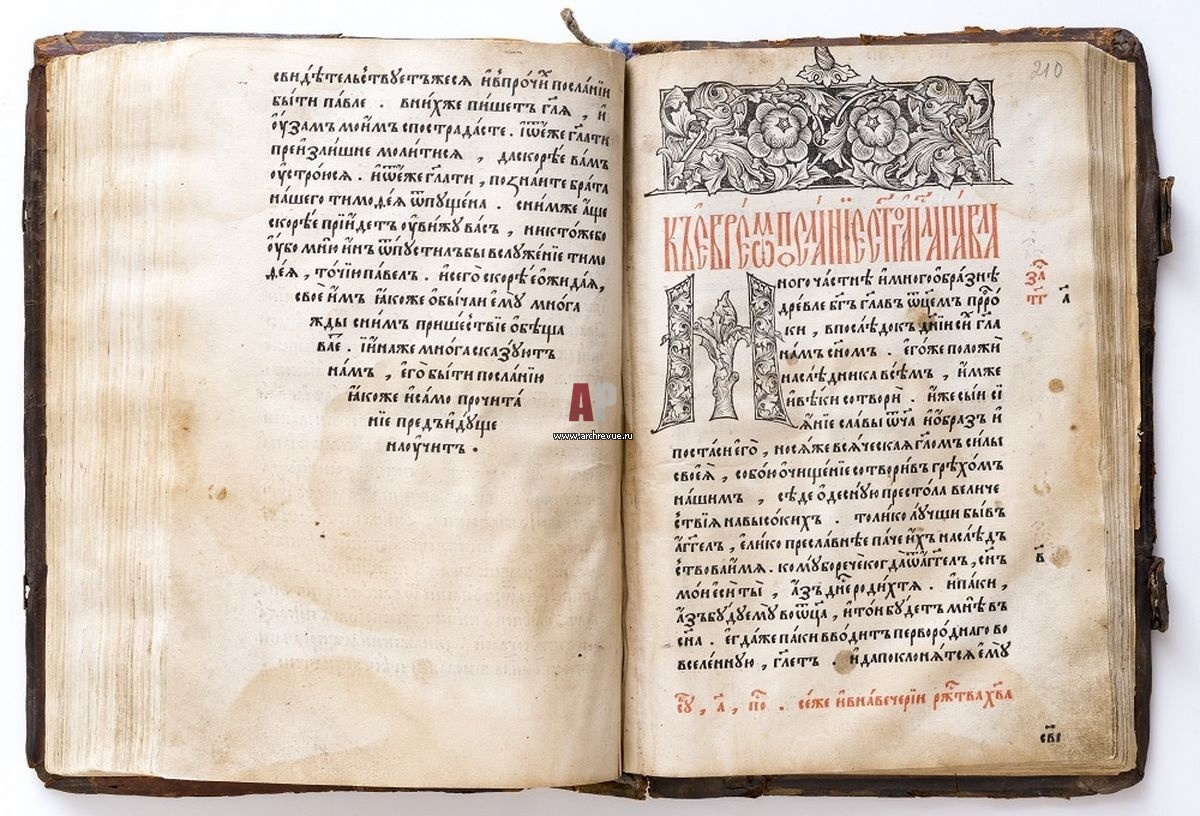 свидѣтельствуетъжеся и҆впро́чїи посла́нїи
бы́ти па́вле . вни́хже пи́шетъ гл҃я , и҆
о҆у҆́замъ мои̑мъ спострада́сте . и҆ѿе҆́же гл҃ати
преи҆зли́шне моли́тися , даскорѣ́е ва́мъ
о҆устро́юся . и҆ѿе҆́же гл҃ати , позна́йте бра́та
на́шего тимоѳе́я ѿпу́щена . сни́мже а҆́ще
скорѣ́е прїи́детъ о҆уви́жу ва́съ , никто́жебо
о҆у҆́бо мню̀ и҆́нъ ѿпусти́лъбы вслуже́нїе тимо
ѳе́я , то́чїю па́велъ . и҆сего̀ скорѣ́е о҆жида́я ,
свое́ и҆мъ ꙗ҆́коже о҆бы́чаи е҆му̀ мно́га
жды сни́мъ прише́ствїе о҆бѣща
ва́е . и҆и҆́наже мно́га сказу́ютъ
на́мъ , е҆го̀ бы́ти посла́нїю
ꙗ҆́коже и҆само̀ прочита́
нїе предъи҆ду́ще
нао҆учи́тъ .
AP
www.archrevue.ru
210
КЪЕВРЕѠМ ПОСЛАНІЕ СТГО АПЛА ПАВЛА
за҆
тг
Много ча́стнѣ и҆ многоѻбра́знѣ
дре́вле бг҃ъ гл҃авъ ѻ҆ц҃е́мъ про҇ро́
ки , впослѣ́докъ дні́и си́хъ гл҃а
на́мъ сн҃омъ . е҆го́же положѝ
наслѣ́дника всѣ́мъ , и҆́мже
и҆вѣ́ки сотворѝ . и҆́же сы́и сі
ѧ҆́нїе сла́вы ѻ҆ч҃а и҆ѻ҆́браз и҆
поста́си е҆го̀ , нося́же вся́ческая гл҃омъ си́лы
своея̀ , собо́ю ѻ҆чище́нїе сотвори́въ грѣхо́мъ
на́шимъ , сѣ́де ѻ҆десну́ю престо́ла вели́че
ствїя навысо́кихъ . толи́ко лу́чши бы́въ
а҆́гг҃елъ , е҆ли́ко пресла́внѣе па́че и҆́хъ наслѣ́д
ствова и҆́мя . кому́бо рече́когда̀ ѿа҆́гг҃елъ , сн҃ъ
мо́и е҆сѝ ты̀ , а҆́зъ дне́сь роди́хтя . и҆па́ки ,
а҆́зъ бу́ду е҆му̀ воѻ҆ц҃а , и҆то́и бу́детъ мнѣ̀ въ
сн҃а . е҆гда́же па́ки вво́дитъ первородна́го во
вселе́нную , гл҃етъ . и҆да покло́нятся е҆му̀
а
в
су҃ , л҃ , по҇ . се́же и҆внавече́рїи рж҇тва хв҃а